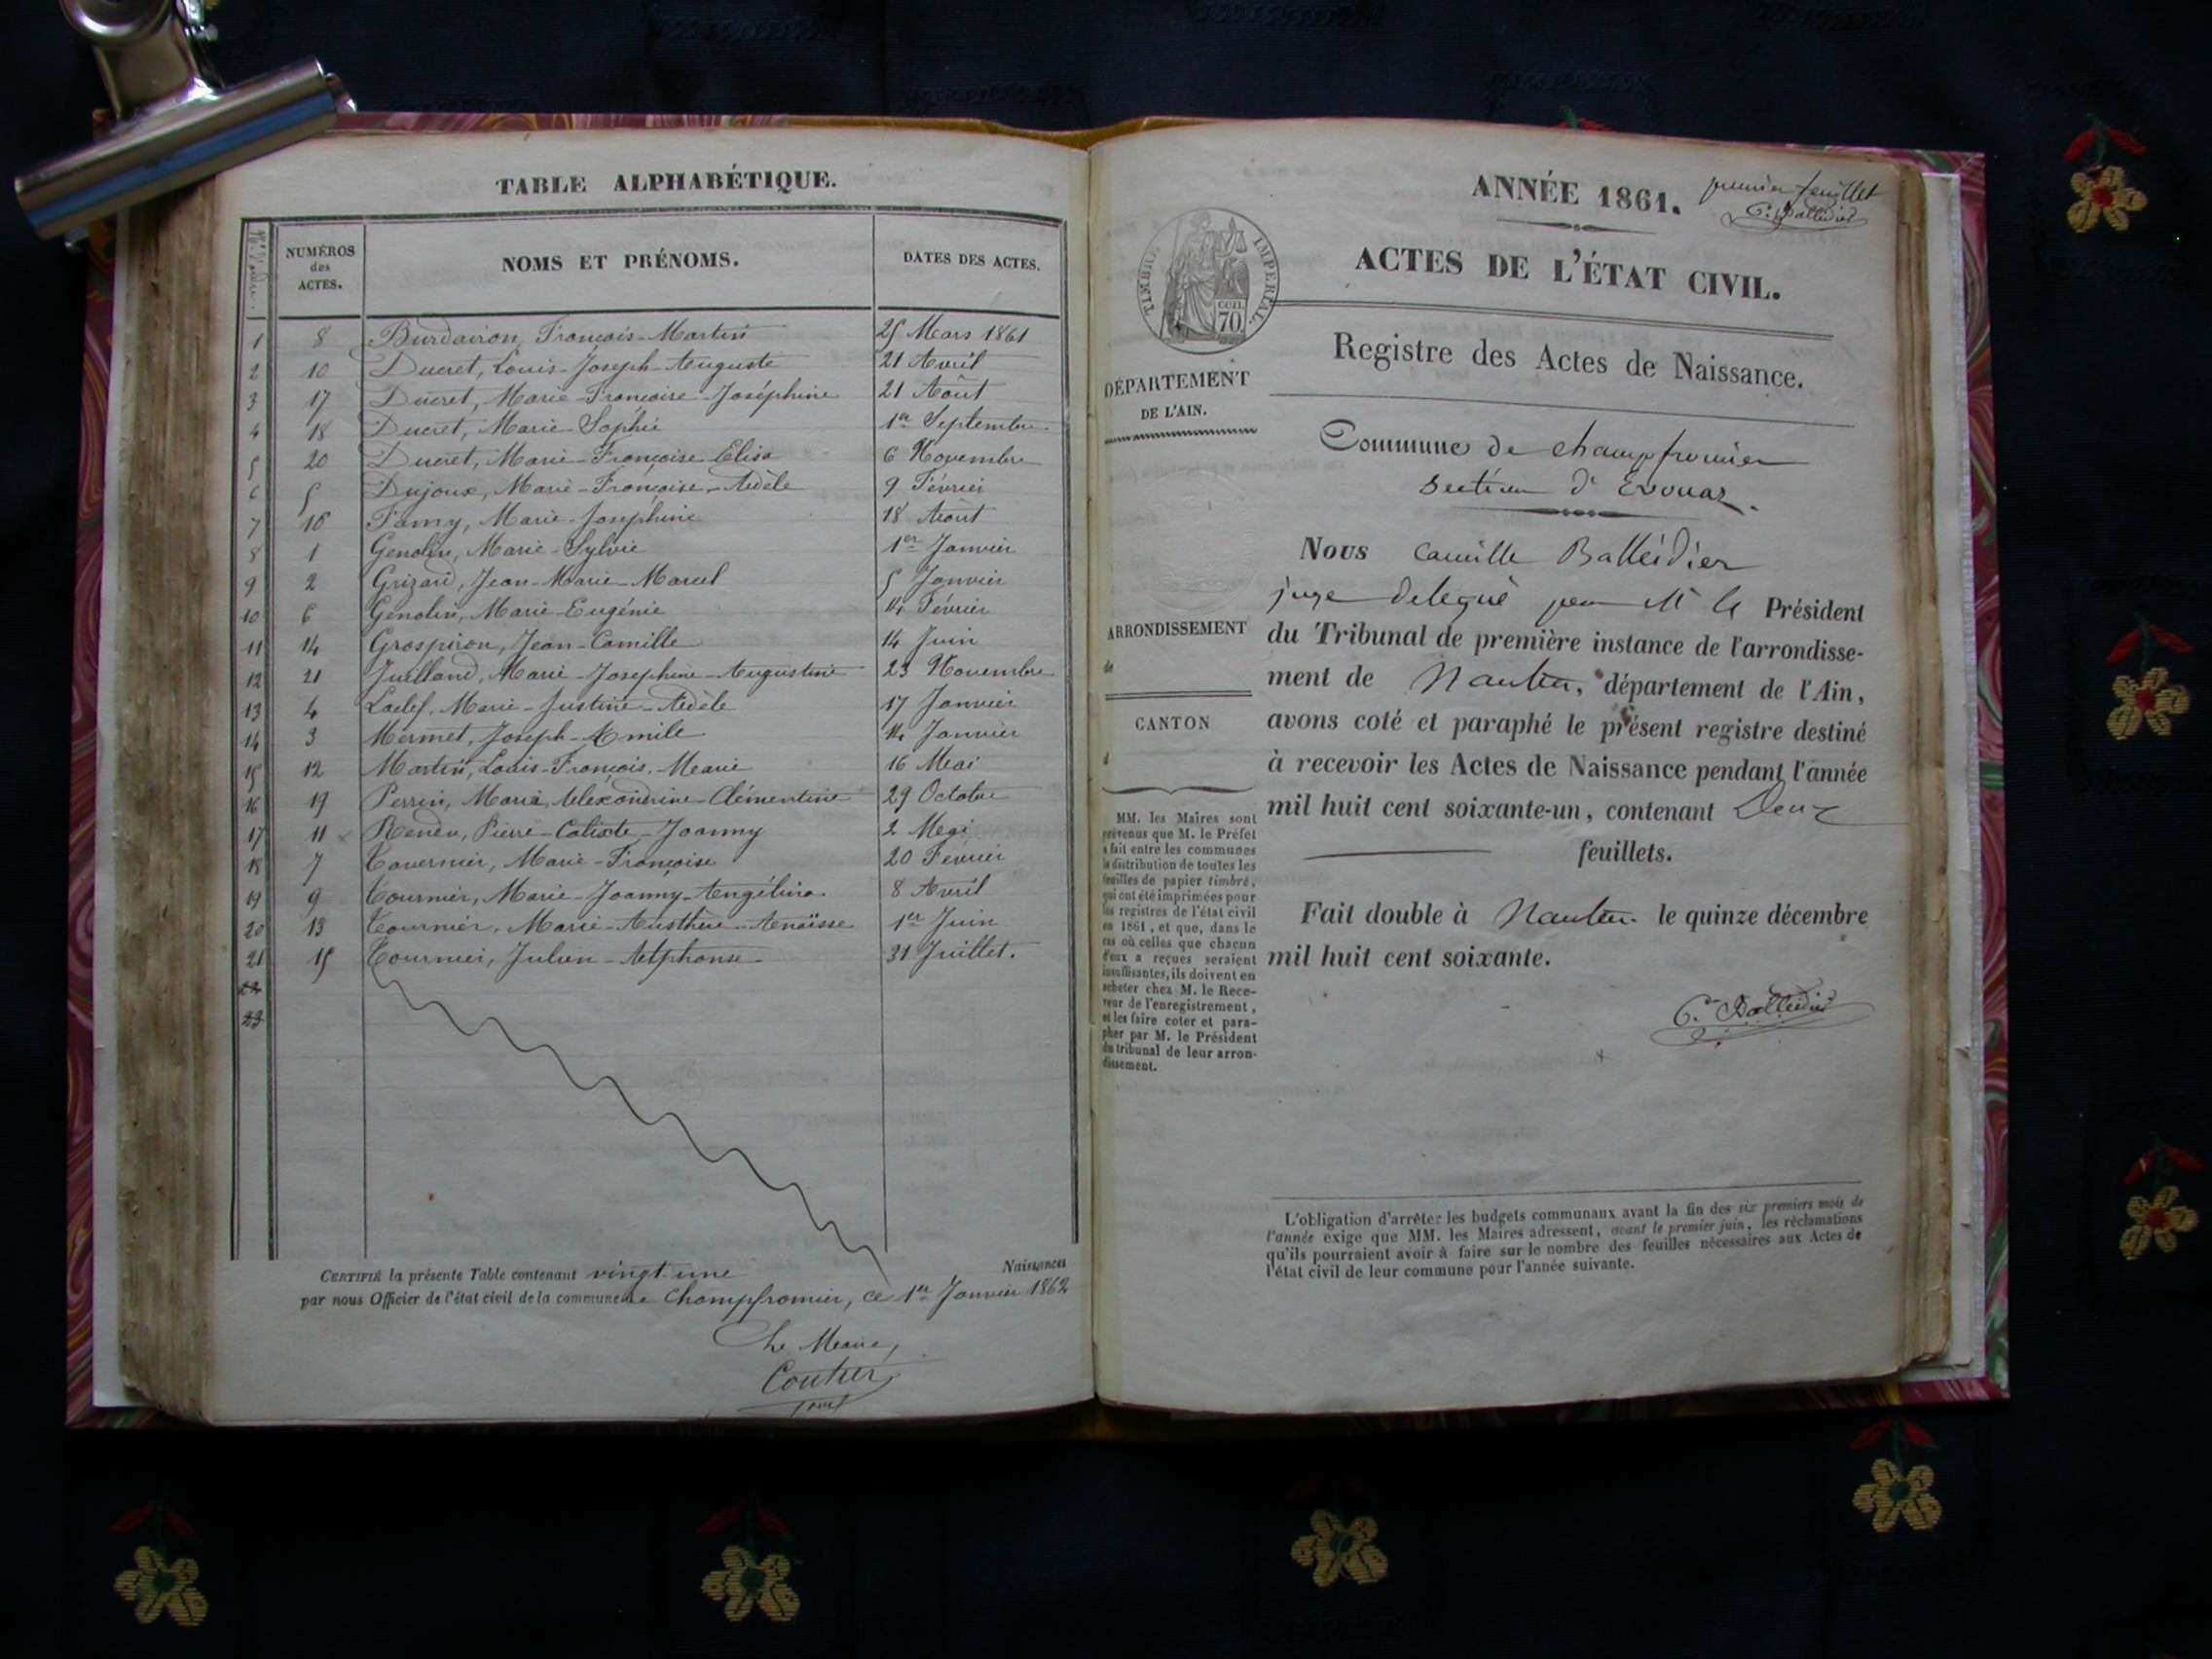 TABLE ALPHABÉTIQUE.
NUMÉROS des ACTES. NOMS ET PRÉNOMS. DATES DES ACTES.
1 8 Burdairon, François-Martin 25 Mars 1861
2 10 Ducret, Louis-Joseph-Auguste 21 Avril
3 17 Ducret, Marie-Françoise-Joséphine 21 Août
4 18 Ducret, Marie-Sophie 1er Septembre
5 20 Ducret, Marie-Françoise Elisa 6 Novembre
6 5 Dujoux, Marie-Françoise-Adèle 9 Février
7 16 Famy, Marie-Joséphine 18 Août
8 1 Genolin, Marie-Sylvie 1er Janvier
9 2 Grizard, Jean-Marie-Marcel 5 Janvier
10 6 Genolin, Marie-Eugénie 14 Février
11 14 Grospiron, Jean-Camille 14 Juin
12 21 Juilland, Marie-Josephine-Augustine 23 Novembre
13 4 Marie-Justine-Adèle 17 Janvier
14 3 Mermet, Joseph-Amile 14 Janvier
15 12 Martin, Louis-François-Marie 16 Mai
16 19 Perrin, Marie, Alexandrine-Clémentine 29 Octobre
17 11 Pierre-Calixte-Joanny 2 Mai
18 7 Tavernier, Marie-Françoise 20 Février
19 9 Tournier, Marie-Joanny-Angélina 8 Avril
20 13 Tournier, Marie-Austhère-Anaïsse 1er Juin
21 15 Tournier, Julien-Alphonse 31 Juillet.
22
23
CERTIFIÉ la présente Table contenant vingt-une Naissances
par nous Officier de l'état civil de la commune de Champfromier, ce 1er Janvier 1862
Le Maire,
Coutier
ANNÉE 1861.
premier feuillet
C. Balleidier
ACTES DE L'ÉTAT CIVIL.
TIMBRE IMPÉRIAL.
cen. 70
Registre des Actes de Naissance.
DÉPARTEMENT
DE L'AIN.
Commune de champfromier
section d'Evouaz.
Nous Camille Balleidier
juge délégué par Mr le Président
du Tribunal de première instance de l'arrondisse-
ment de Nantua, département de l'Ain,
avons coté et paraphé le présent registre destiné
à recevoir les Actes de Naissance pendant l'année
mil huit cent soixante-un, contenant Deux
feuillets.
Fait double à Nantua le quinze décembre
mil huit cent soixante.
C. Balleidier
ARRONDISSEMENT
de
CANTON
d
MM. les Maires sont
prévenus que M. le Préfet
a fait entre les communes
la distribution de toutes les
feuilles de papier timbré,
qui ont été imprimées pour
les registres de l'état civil
en 1861, et que, dans le
cas où celles que chacun
d'eux a reçues seraient
insuffisantes, ils doivent en
acheter chez M. le Rece-
veur de l'enregistrement,
et les faire coter et para-
pher par M. le Président
du tribunal de leur arron-
dissement.
L'obligation d'arrêter les budgets communaux avant la fin des six premiers mois de
l'année exige que MM. les Maires adressent, avant le premier juin, les réclamations
qu'ils pourraient avoir à faire sur le nombre des feuilles nécessaires aux Actes de
l'état civil de leur commune pour l'année suivante.